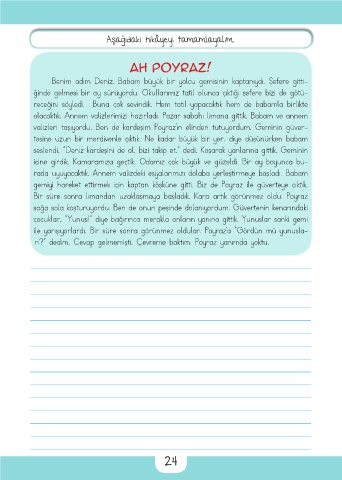 Aşağıdaki hikâyeyi tamamlayalım.
AH POYRAZ!
Benim adım Deniz. Babam büyük bir yolcu gemisinin kaptanıydı. Sefere gitti-
ğinde gelmesi bir ay sürüyordu. Okullarımız tatil olunca çıktığı sefere bizi de götü-
receğini söyledi. Buna çok sevindik. Hem tatil yapacaktık hem de babamla birlikte
olacaktık. Annem valizlerimizi hazırladı. Pazar sabahı limana gittik. Babam ve annem
valizleri taşıyordu. Ben de kardeşim Poyraz'ın elinden tutuyordum. Geminin güver-
tesine uzun bir merdivenle çıktık. Ne kadar büyük bir yer, diye düşünürken babam
seslendi, "Deniz kardeşini de al, bizi takip et." dedi. Koşarak yanlarına gittik. Geminin
içine girdik. Kamaramıza geçtik. Odamız çok büyük ve güzeldi. Bir ay boyunca bu-
rada uyuyacaktık. Annem valizdeki eşyalarımızı dolaba yerleştirmeye başladı. Babam
gemiyi hareket ettirmek için kaptan köşküne gitti. Biz de Poyraz ile güverteye çıktık.
Bir süre sonra limandan uzaklaşmaya başladık. Kara artık görünmez oldu. Poyraz
sağa sola koşturuyordu. Ben de onun peşinde dolanıyordum. Güvertenin kenarındaki
çocuklar, "Yunus!" diye bağırınca merakla onların yanına gittik. Yunuslar sanki gemi
ile yarışıyorlardı. Bir süre sonra görünmez oldular. Poyraz'a "Gördün mü yunusla-
rı?" dedim. Cevap gelmemişti. Çevreme baktım. Poyraz yanımda yoktu.
24